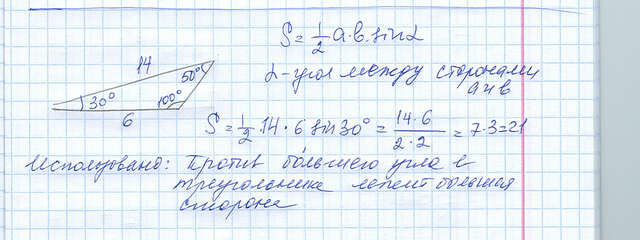 S = 1/2 a·b·sinα
14
50°
α - угол между сторонами
а и в
30°
100°
6
S = 1/2 · 14 · 6 sin 30° = 14·6 / 2·2 = 7·3 = 21
Использовано: Против большего угла в
треугольнике лежит большая
сторона